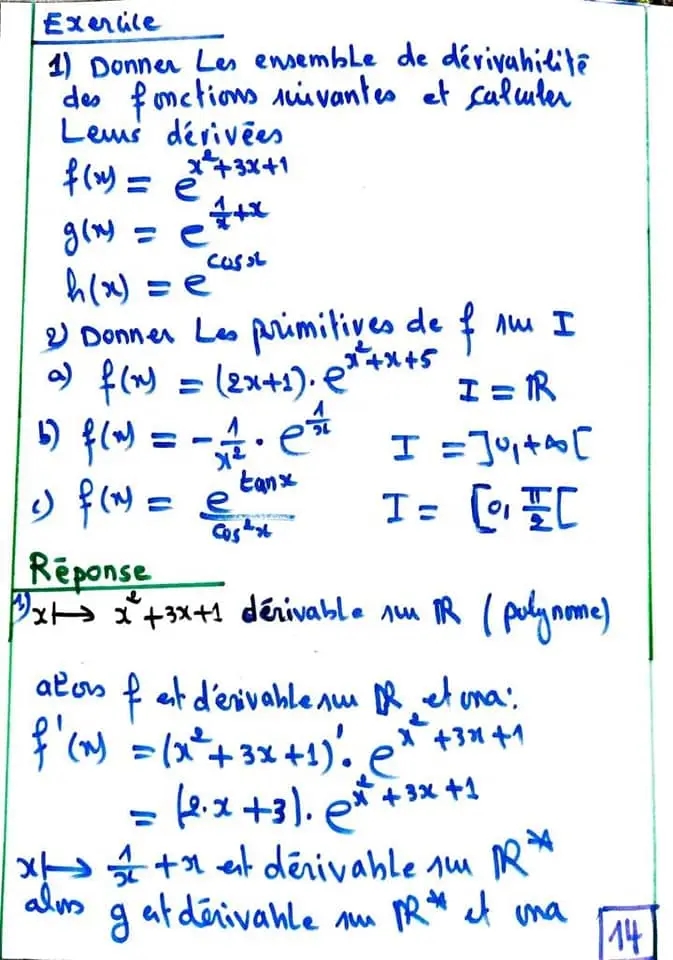 Exercice
1) Donner Les ensemble de dérivabilité
des fonctions suivantes et calculer
Leurs dérivées
f(x) = e^{x²+3x+1}
g(x) = e^{1/x + x}
h(x) = e^{cos x}
2) Donner Les primitives de f sur I
a) f(x) = (2x+1)·e^{x²+x+5} I = ℝ
b) f(x) = -1/x² · e^{1/x} I = ]0,+∞[
c) f(x) = e^{tan x}/cos²x I = [0, π/2[
Réponse
1) x ↦ x²+3x+1 dérivable sur ℝ (polynome)
alors f est dérivable sur ℝ et ona:
f'(x) = (x²+3x+1)'· e^{x²+3x+1}
= (2·x+3)· e^{x²+3x+1}
x ↦ 1/x + x est dérivable sur ℝ*
alors g est dérivable sur ℝ* et ona
14